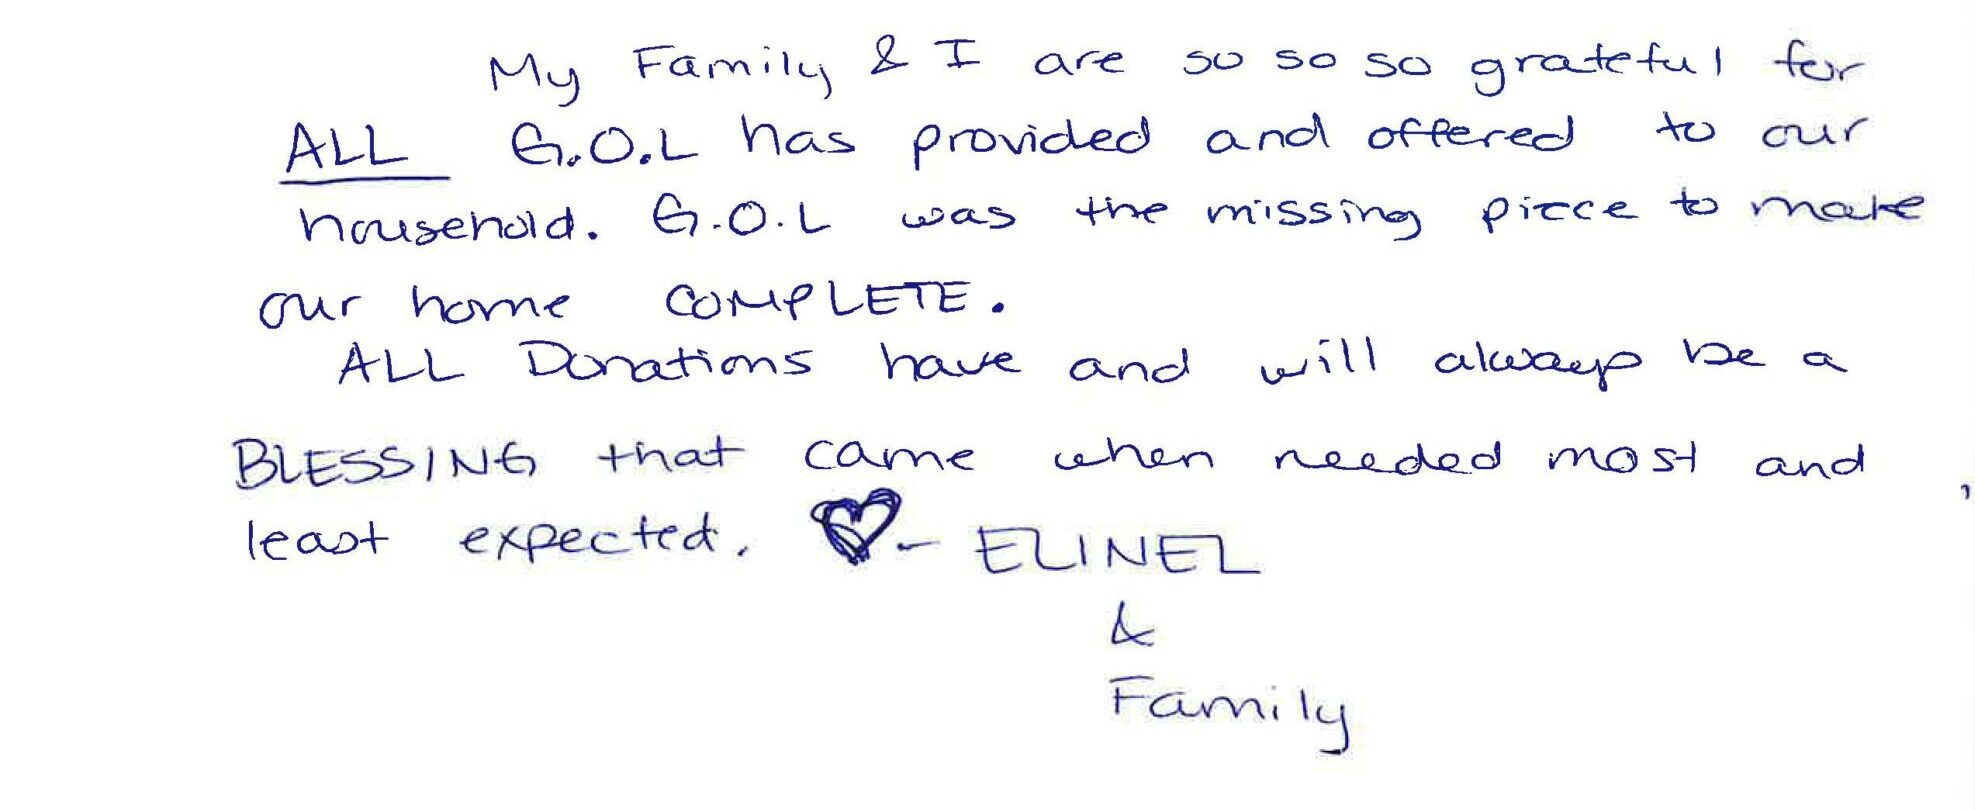 My Family & I are so so so grateful for
ALL G.O.L has provided and offered to our
household. G.O.L was the missing piece to make
our home COMPLETE.
ALL Donations have and will always be a
BLESSING that came when needed most and
least expected. ♡- ELINEL
&
Family